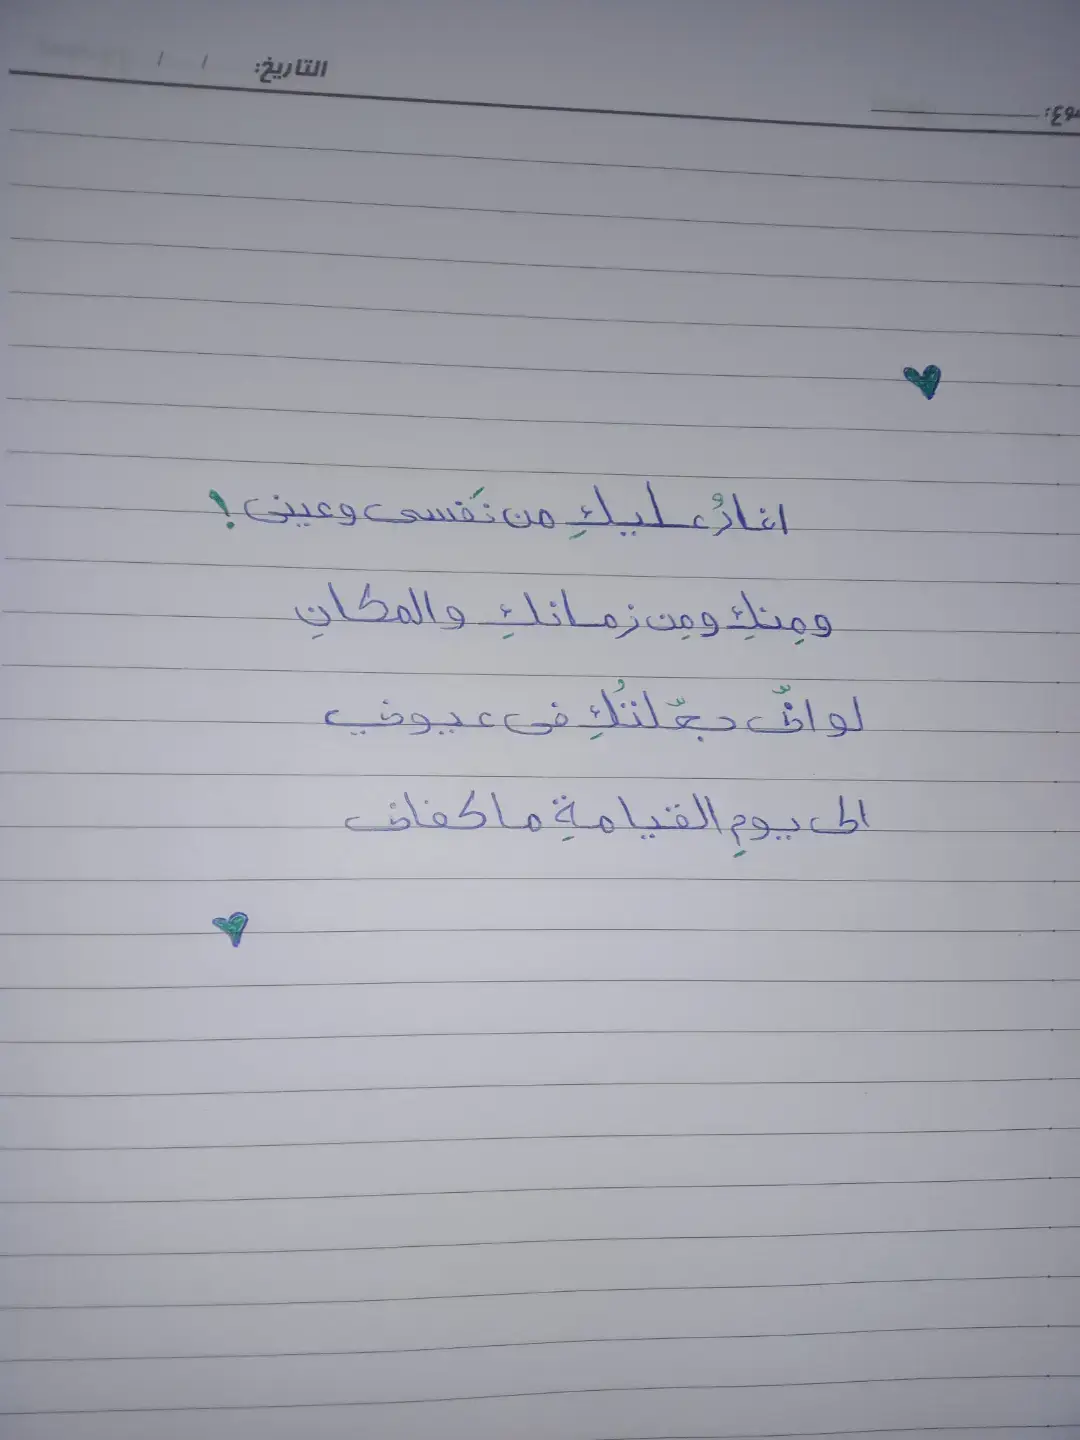 التاريخ: / /
وع:
اغارُ عليكِ من نَفسى وعينى !
ومِنكِ ومِن زمانكِ والمكانِ
لو انّى جعّلتُكِ فى عيونى
الى يومِ القيامةِ ما كفانى